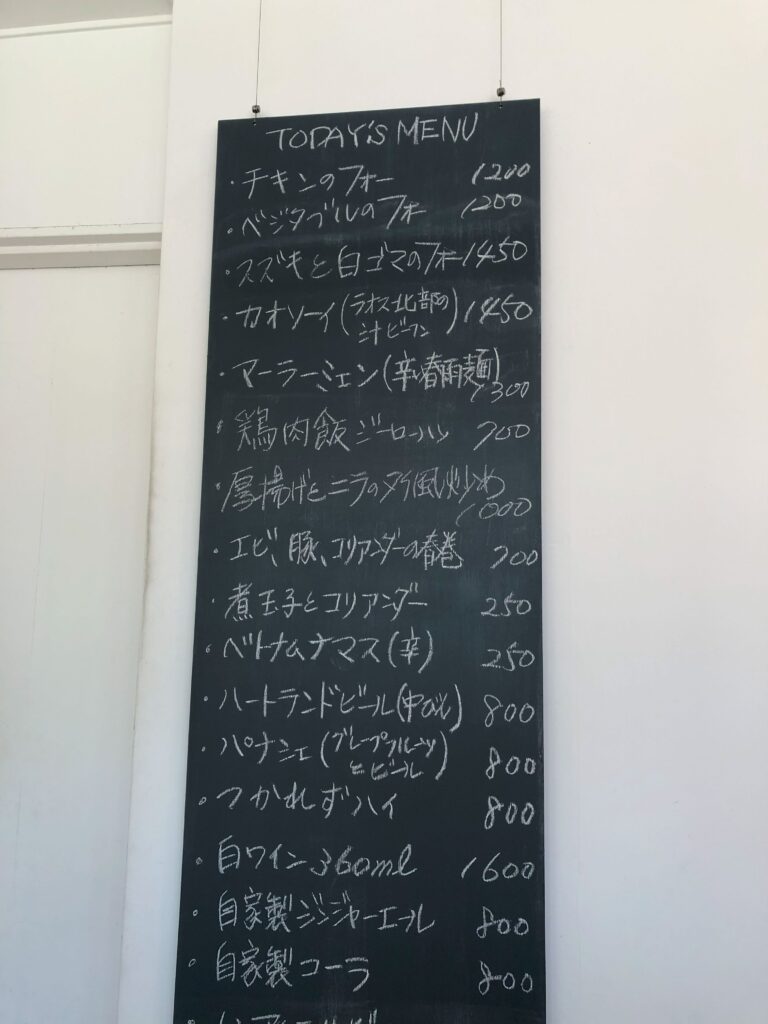 TODAY'S MENU
・チキンのフォー 1200
・ベジタブルのフォー 1200
・スズキと白ゴマのフォー 1450
・カオソーイ(ラオス北部の汁ビーフン) 1450
・マーラーミェン(辛い春雨麺) 1300
・鶏肉飯 ジーローハン 700
・厚揚げとニラのタイ風炒め 1000
・エビ、豚、コリアンダーの春巻 700
・煮玉子とコリアンダー 250
・ベトナムナマス(辛) 250
・ハートランドビール(中びん) 800
・パナシェ(グレープフルーツとビール) 800
・つかれずハイ 800
・白ワイン 360ml 1600
・自家製ジンジャーエール 800
・自家製コーラ 800